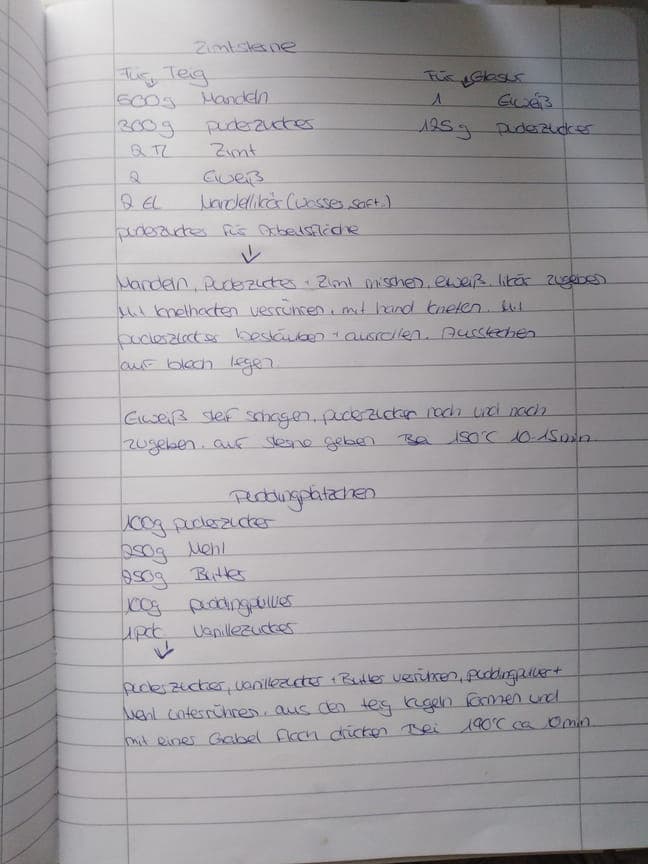 Zimtsterne
Für Teig Für Glasur
500g Mandeln 1 Eiweiß
300g Puderzucker 125g Puderzucker
2 TL Zimt
2 Eiweiß
2 EL Mandellikör (Wasser, Saft..)
Puderzucker für Arbeitsfläche
↓
Mandeln, Puderzucker + Zimt mischen, eiweiß, likör zugeben
Mit knethacken verrühren, mit hand kneten. Mit
puderzucker bestäuben + ausrollen. Ausstechen
auf blech legen.
Eiweiß steif schagen, puderzucker nach und nach
zugeben. auf sterne geben Bei 150°C 10-15min
Puddingplätzchen
100g puderzucker
250g Mehl
250g Butter
100g puddingpulver
1 pck Vanillezucker
↓
puderzucker, vanillezucker + Butter verrühren, puddingpulver +
Mehl unterrühren. aus den teig kugeln formen und
mit einer Gabel flach drücken Bei 190°C ca 10min